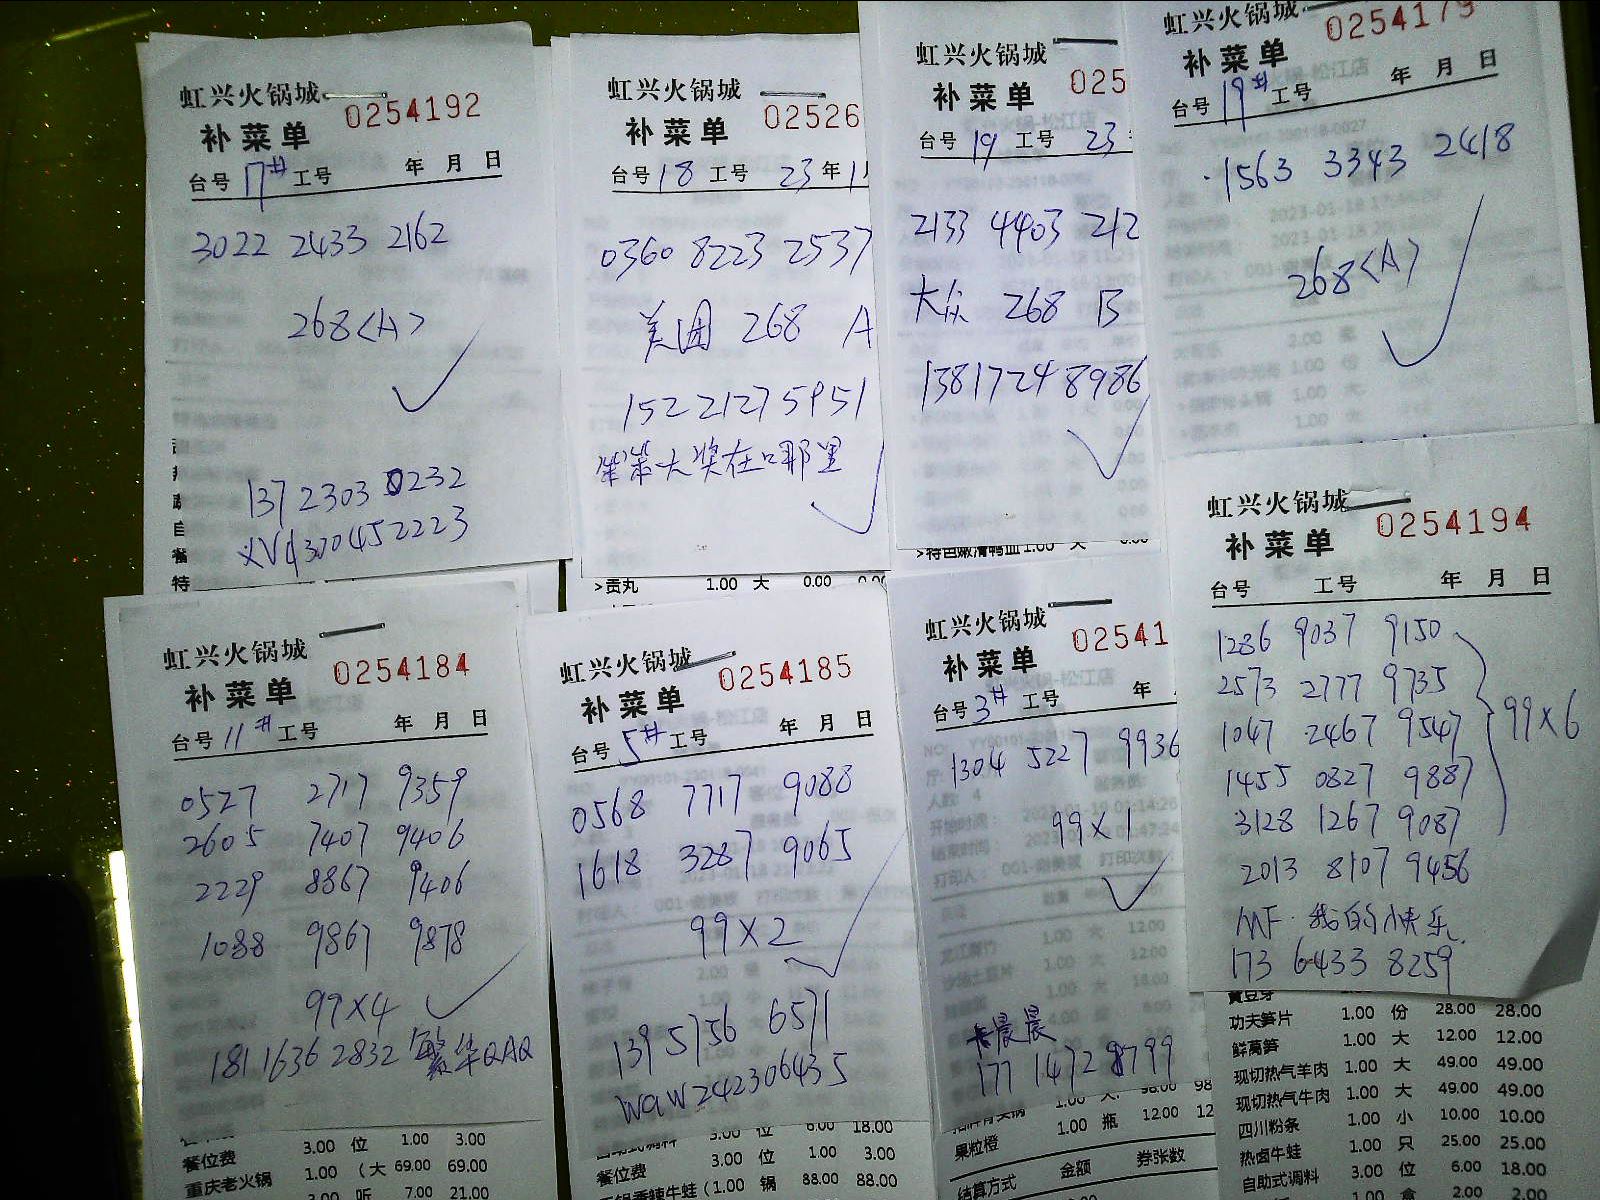 虹兴火锅城
补菜单 0254192
台号 17# 工号 年 月 日
3022 2433 2162
268<A>
137 2303 0232
虹兴火锅城
补菜单 02526
台号 18 工号 23年1
0360 8223 2537
美团 268 A
152 2127 5951
笨笨大奖在哪里
>贡丸 1.00 大 0.00 0.00
虹兴火锅城
补菜单 025
台号 19 工号 23
2133 4403 212
大众 268 B
1381724 8986
>特色嫩滑鸭血 1.00 大 0.00
虹兴火锅城
补菜单 0254179
台号 19# 工号 年 月 日
1563 3343 2418
268<A>
虹兴火锅城
补菜单 0254184
台号 11# 工号 年 月 日
0527 2717 9359
2605 7407 9406
2229 8867 9406
1088 9867 9878
99X4
181 1636 2832 繁华QAQ
餐位费 3.00 位 1.00 3.00
重庆老火锅 1.00 (大 69.00 69.00
3.00 听 7.00 21.00
虹兴火锅城
补菜单 0254185
台号 5# 工号 年 月 日
0568 7717 9088
1618 3287 9065
99X2
139 5756 6571
waw242306435
自助式调料 3.00 位 6.00 18.00
餐位费 3.00 位 1.00 3.00
(1.00 锅 88.00 88.00
虹兴火锅城
补菜单 02541
台号 3# 工号 年
1304 5227 9936
99X1
晨晨
177 1472 8799
1.00 大 98.00 98
果粒橙 1.00 瓶 12.00 12
结算方式 金额 券张数
虹兴火锅城
补菜单 0254194
台号 工号 年 月 日
1286 9037 9150
2573 2777 9735
1047 2467 9547
99X6
1455 0827 9887
3128 1267 9087
2013 8107 9456
MF·我的小快乐
173 6433 8259
黄豆芽
功夫笋片 1.00 份 28.00 28.00
鲜莴笋 1.00 大 12.00 12.00
现切热气羊肉 1.00 大 49.00 49.00
现切热气牛肉 1.00 大 49.00 49.00
四川粉条 1.00 小 10.00 10.00
热卤牛蛙 1.00 只 25.00 25.00
自助式调料 3.00 位 6.00 18.00
1.00 盒 2.00 2.00